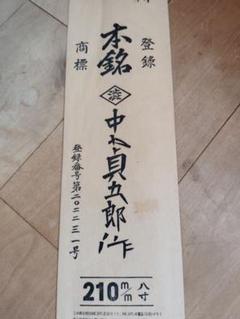 登録
商標
本銘
中屋貞五郎作
登録番号第二〇二二三一号
210 m/m 八寸